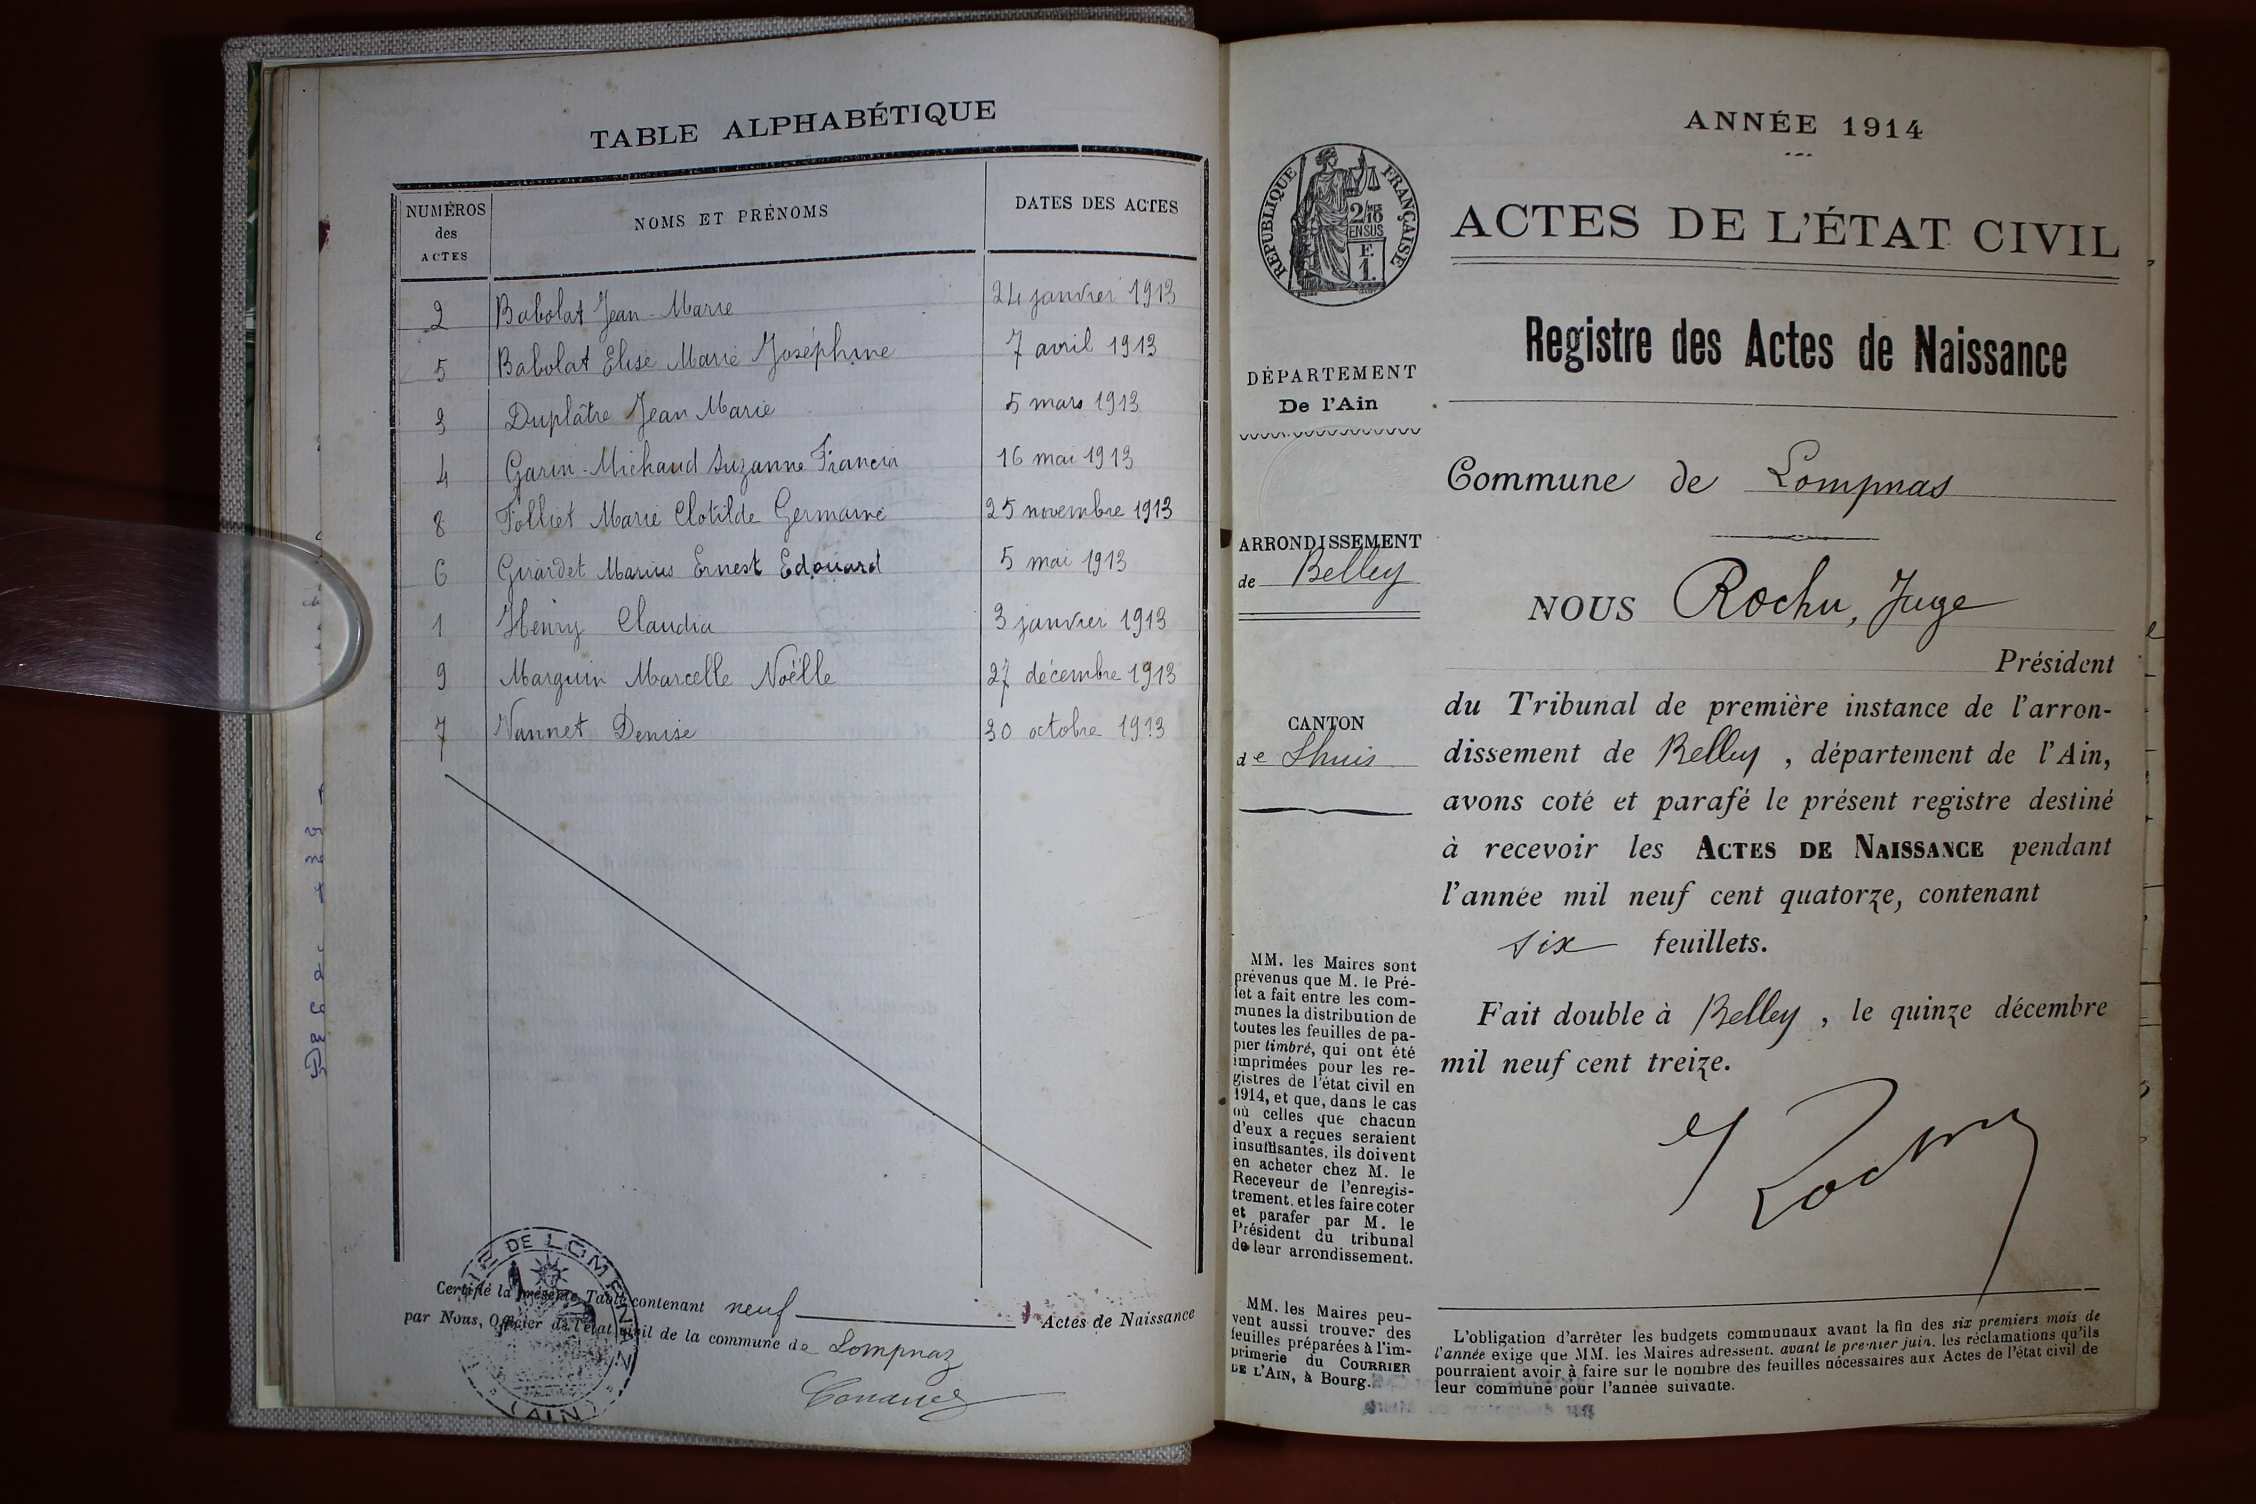 TABLE ALPHABÉTIQUE
NUMÉROS des ACTES NOMS ET PRÉNOMS DATES DES ACTES
2 Babolat Jean-Marie 24 janvier 1913
5 Babolat Elise Marie Joséphine 7 avril 1913
3 Duplâtre Jean Marie 5 mars 1913
4 Garin-Michaud Suzanne Francia 16 mai 1913
8 Folliet Marie Clotilde Germaine 25 novembre 1913
6 Girardet Marius Ernest Edouard 5 mai 1913
1 Henry Claudia 3 janvier 1913
9 Marguin Marcelle Noëlle 27 décembre 1913
7 Vannet Denise 30 octobre 1913
Certifié la présente Table contenant neuf Actes de Naissance
par Nous, Officier de l'état civil de la commune de Lompnaz
DE LOMPNAZ
(AIN)
ANNÉE 1914
RÉPUBLIQUE FRANÇAISE
2/10
EN SUS
F.
1.
ACTES DE L'ÉTAT CIVIL
Registre des Actes de Naissance
DÉPARTEMENT
De l'Ain
Commune de Lompnas
ARRONDISSEMENT
de Belley
NOUS Rochu, Juge
Président
CANTON
de Lhuis
du Tribunal de première instance de l'arron-
dissement de Belley, département de l'Ain,
avons coté et parafé le présent registre destiné
à recevoir les ACTES DE NAISSANCE pendant
l'année mil neuf cent quatorze, contenant
six feuillets.
Fait double à Belley, le quinze décembre
mil neuf cent treize.
MM. les Maires sont
prévenus que M. le Pré-
fet a fait entre les com-
munes la distribution de
toutes les feuilles de pa-
pier timbré, qui ont été
imprimées pour les re-
gistres de l'état civil en
1914, et que, dans le cas
où celles que chacun
d'eux a reçues seraient
insuffisantes, ils doivent
en acheter chez M. le
Receveur de l'enregis-
trement, et les faire coter
et parafer par M. le
Président du tribunal
de leur arrondissement.
MM. les Maires peu-
vent aussi trouver des
feuilles préparées à l'im-
primerie du COURRIER
DE L'AIN, à Bourg.
L'obligation d'arrêter les budgets communaux avant la fin des six premiers mois de
l'année exige que MM. les Maires adressent, avant le premier juin, les réclamations qu'ils
pourraient avoir à faire sur le nombre des feuilles nécessaires aux Actes de l'état civil de
leur commune pour l'année suivante.